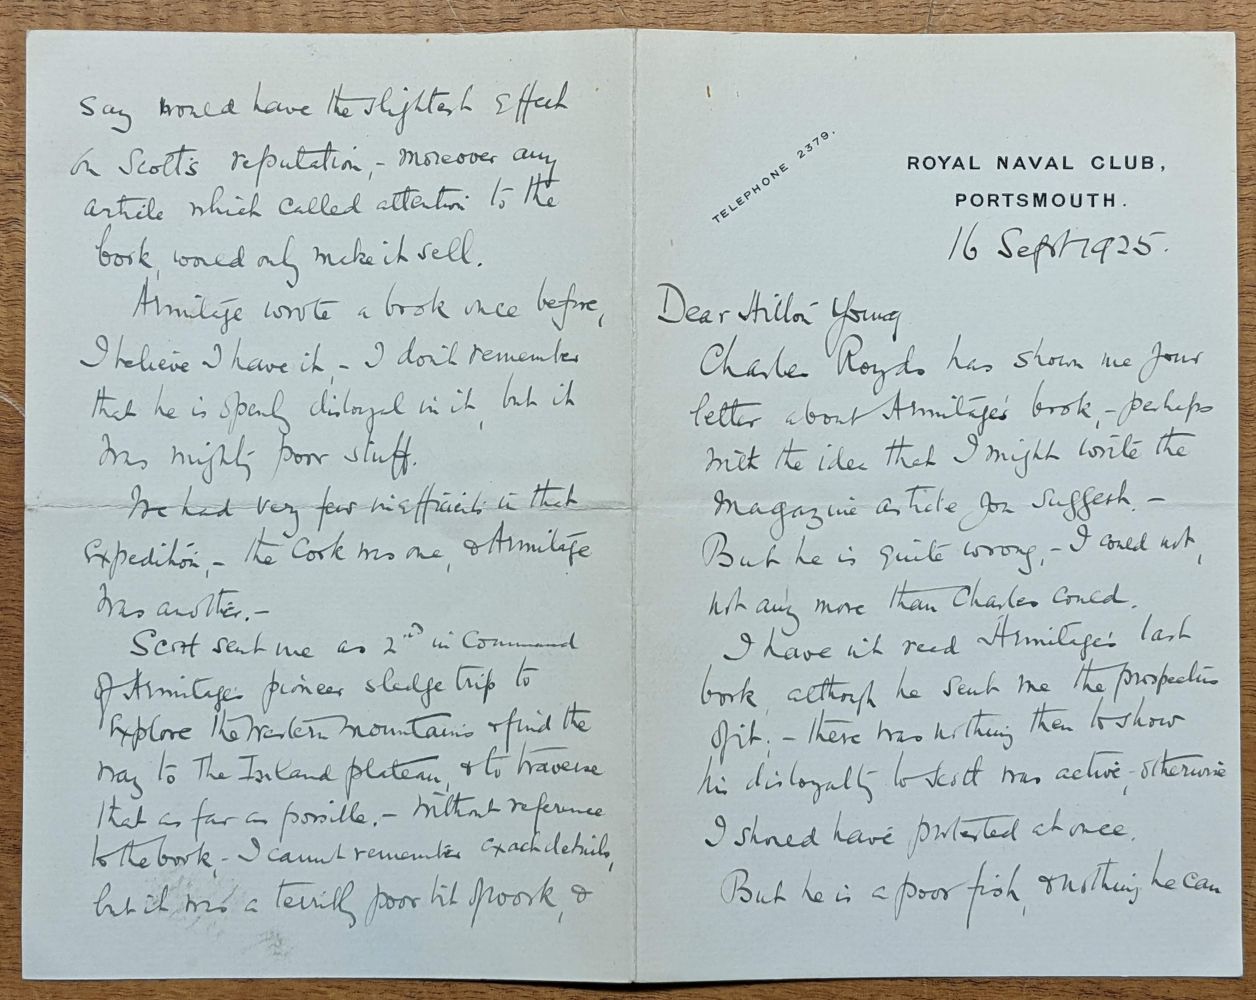 TELEPHONE 2379.
ROYAL NAVAL CLUB,
PORTSMOUTH.
16 Sept 1925.
Dear Hilton Young
Charles Royds has shown me your
letter about Armitage's book, - perhaps
with the idea that I might write the
Magazine article you suggest. -
But he is quite wrong, - I could not,
not any more than Charles could.
I have not read Armitage's last
book, although he sent me the prospectus
of it; - there was nothing then to show
his disloyalty to Scott was active, - otherwise
I should have protested at once.
But he is a poor fish, & nothing he can
say would have the slightest effect
on Scott's reputation, - moreover any
article which called attention to the
book, would only make it sell.
Armitage wrote a book once before,
I believe I have it, - I don't remember
that he is openly disloyal in it, but it
was mighty poor stuff.
We had very few inefficients in that
Expedition, - the Cook was one, & Armitage
was another. -
Scott sent me as 2nd in Command
of Armitage's pioneer sledge trip to
explore the Western Mountains & find the
way to The Inland plateau, & to traverse
that as far as possible. - Without reference
to the book, - I cannot remember exact details,
but it was a terribly poor bit of work, &